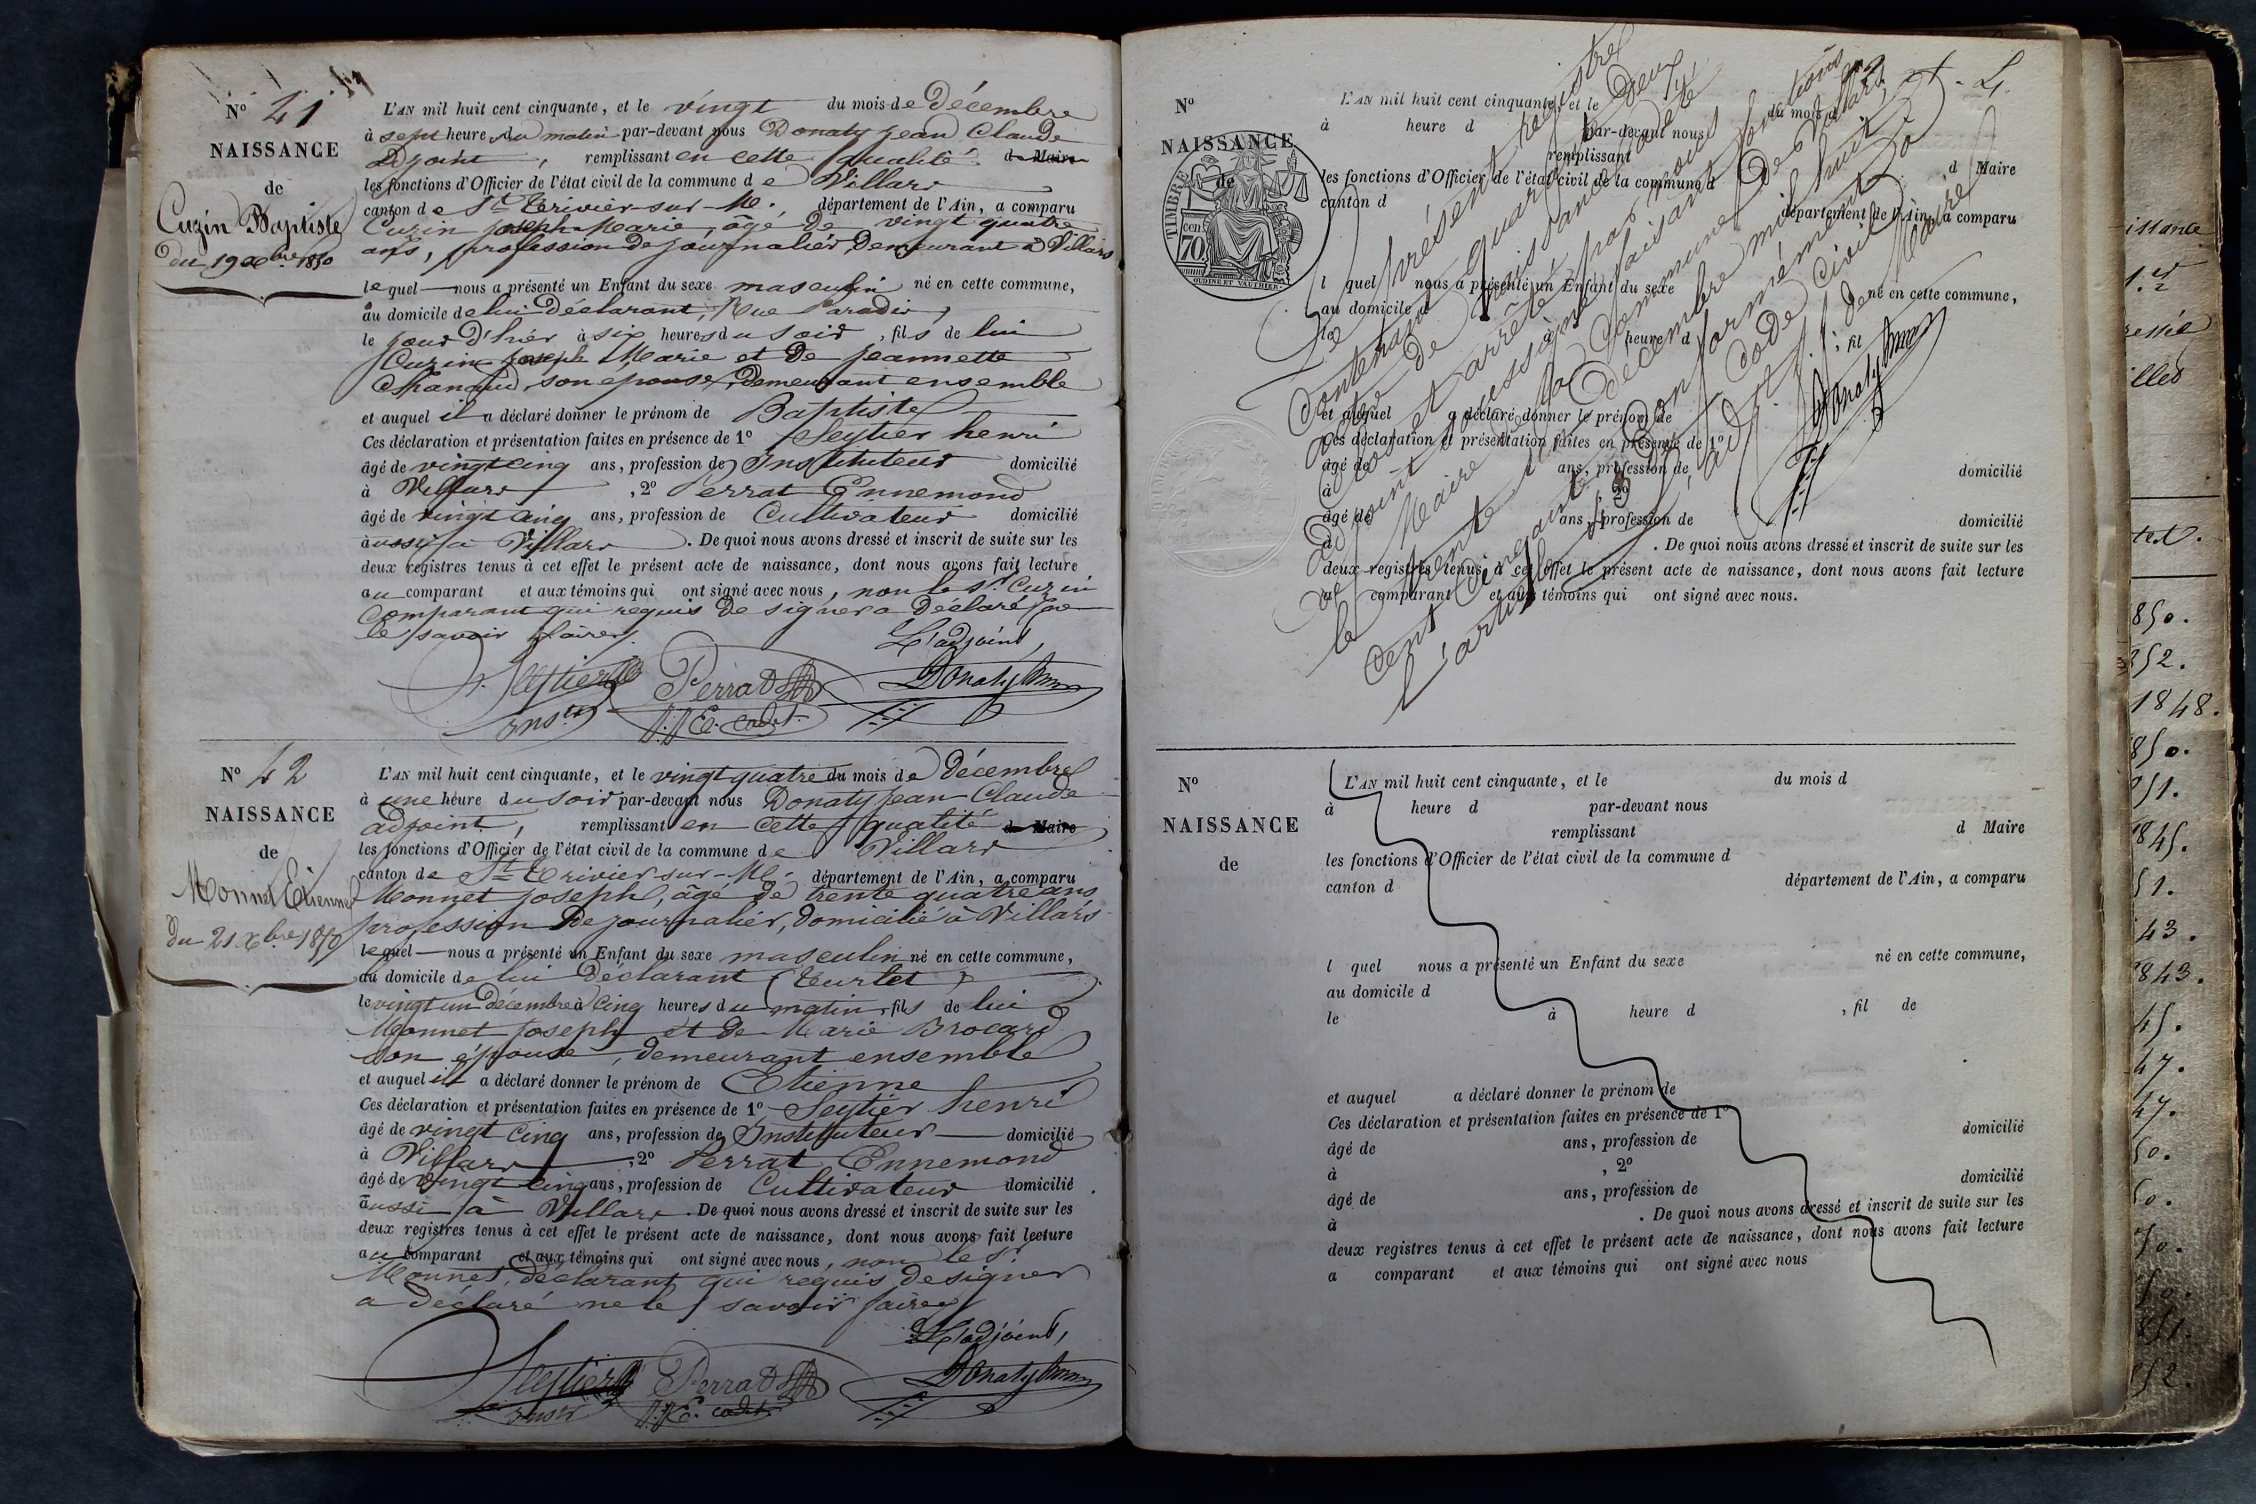 N° 41
NAISSANCE
de
Cuzin Baptiste
du 19 Xbre 1850
L'AN mil huit cent cinquante, et le vingt du mois de Décembre
à sept heure du matin par-devant nous Donaty jean Claude
adjoint, remplissant en cette qualité d Maire
les fonctions d'Officier de l'état civil de la commune de Villars
canton de St Trivier-sur-M. département de l'Ain, a comparu
Cuzin joseph Marie, âgé de vingt quatre
ans, profession de journalier, Demeurant à Villars
lequel nous a présenté un Enfant du sexe masculin né en cette commune,
au domicile de lui Déclarant, Rue Paradis,
le jour d'hier à six heures du soir, fils de lui
Cuzin joseph Marie et de jeannette
son epouse, demeurant ensemble
et auquel il a déclaré donner le prénom de Baptiste
Ces déclaration et présentation faites en présence de 1° Seytier henri
âgé de vingt cinq ans, profession de Instituteur domicilié
à Villars, 2° Perrat Ennemond
âgé de vingt cinq ans, profession de Cultivateur domicilié
aussi à Villars. De quoi nous avons dressé et inscrit de suite sur les
deux registres tenus à cet effet le présent acte de naissance, dont nous avons fait lecture
au comparant et aux témoins qui ont signé avec nous, non le Sr Cuzin
comparant qui requis de signer a Déclaré
le savoir faire.
L'adjoint,
Seytier Perrat Donaty
instr J.P.E. cadet
N° 42
NAISSANCE
de
Monnet Etienne
du 21 Xbre 1850
L'AN mil huit cent cinquante, et le vingt quatre du mois de Décembre
à une heure du soir par-devant nous Donaty jean Claude
adjoint, remplissant en cette qualité d Maire
les fonctions d'Officier de l'état civil de la commune de Villars
canton de St Trivier-sur-M. département de l'Ain, a comparu
Monnet joseph, âgé de trente quatre ans
profession de journalier, domicilié à Villars
lequel nous a présenté un Enfant du sexe masculin né en cette commune,
au domicile de lui Déclarant
le vingt un décembre à cinq heures du matin, fils de lui
Monnet joseph et de Marie Brocard
son épouse, demeurant ensemble
et auquel il a déclaré donner le prénom de Etienne
Ces déclaration et présentation faites en présence de 1° Seytier henri
âgé de vingt cinq ans, profession de Instituteur domicilié
à Villars, 2° Perrat Ennemond
âgé de vingt cinq ans, profession de Cultivateur domicilié
aussi à Villars. De quoi nous avons dressé et inscrit de suite sur les
deux registres tenus à cet effet le présent acte de naissance, dont nous avons fait lecture
au comparant et aux témoins qui ont signé avec nous, non le Sr
Monnet, déclarant qui requis de signer
a déclaré ne le savoir faire
L'adjoint,
Seytier Perrat Donaty
instr J.P.E. cadet
N°
NAISSANCE
de
TIMBRE
70 cen
OUDINE ET VAUTHIER
L'AN mil huit cent cinquante, et le du mois d
à heure d par-devant nous
remplissant d Maire
les fonctions d'Officier de l'état civil de la commune d
canton d département de l'Ain, a comparu
l quel nous a présenté un Enfant du sexe né en cette commune,
au domicile d
le à heure d , fil de
et auquel a déclaré donner le prénom de
Ces déclaration et présentation faites en présence de 1°
âgé de ans, profession de domicilié
à , 2°
âgé de ans, profession de domicilié
à . De quoi nous avons dressé et inscrit de suite sur les
deux registres tenus à cet effet le présent acte de naissance, dont nous avons fait lecture
a comparant et aux témoins qui ont signé avec nous.
Le présent registre
contenant quarante deux
actes de naissance a été
clos et arrêté par nous
adjoint soussigné faisant fonctions
de Maire de la commune de Villars
le trente un Décembre mil huit
cent cinquante conformément à
l'article 43 du code civil
L'adjoint f.f. de Maire
Donaty
N°
NAISSANCE
de
L'AN mil huit cent cinquante, et le du mois d
à heure d par-devant nous
remplissant d Maire
les fonctions d'Officier de l'état civil de la commune d
canton d département de l'Ain, a comparu
l quel nous a présenté un Enfant du sexe né en cette commune,
au domicile d
le à heure d , fil de
et auquel a déclaré donner le prénom de
Ces déclaration et présentation faites en présence de 1°
âgé de ans, profession de domicilié
à , 2°
âgé de ans, profession de domicilié
à . De quoi nous avons dressé et inscrit de suite sur les
deux registres tenus à cet effet le présent acte de naissance, dont nous avons fait lecture
a comparant et aux témoins qui ont signé avec nous
850.
852.
1848.
850.
851.
1845.
51.
43.
1843.
45.
47.
47.
50.
50.
50.
50.
851.
52.